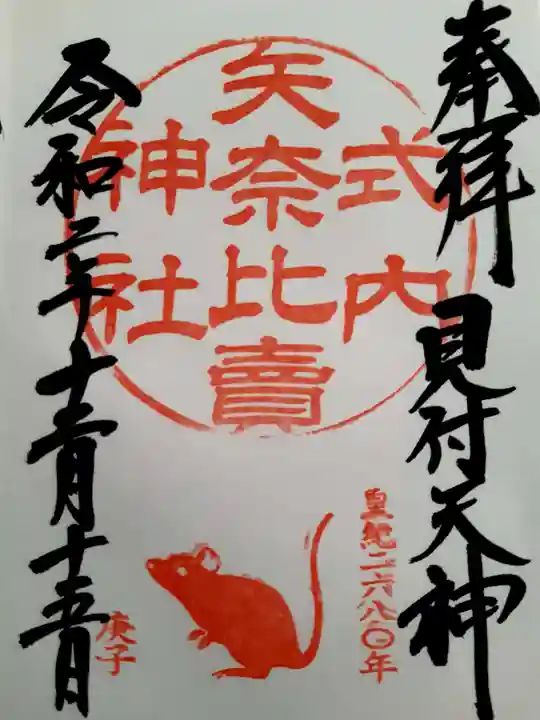 奉拝　見付天神
式内
矢奈比賣
神社
皇紀二六八〇年
庚子
令和二年十二月十五日